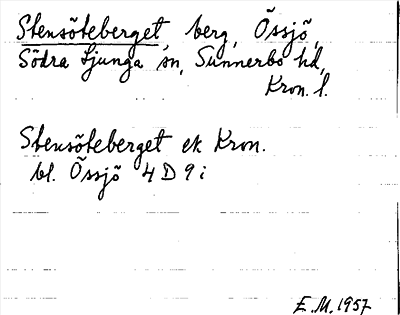 Stensöteberget, berg, Össjö,
Södra Ljunga sn, Sunnerbo hd,
Kron. l.
Stensöteberget ek Kron.
bl. Össjö 4 D 9 i
E.M. 1957